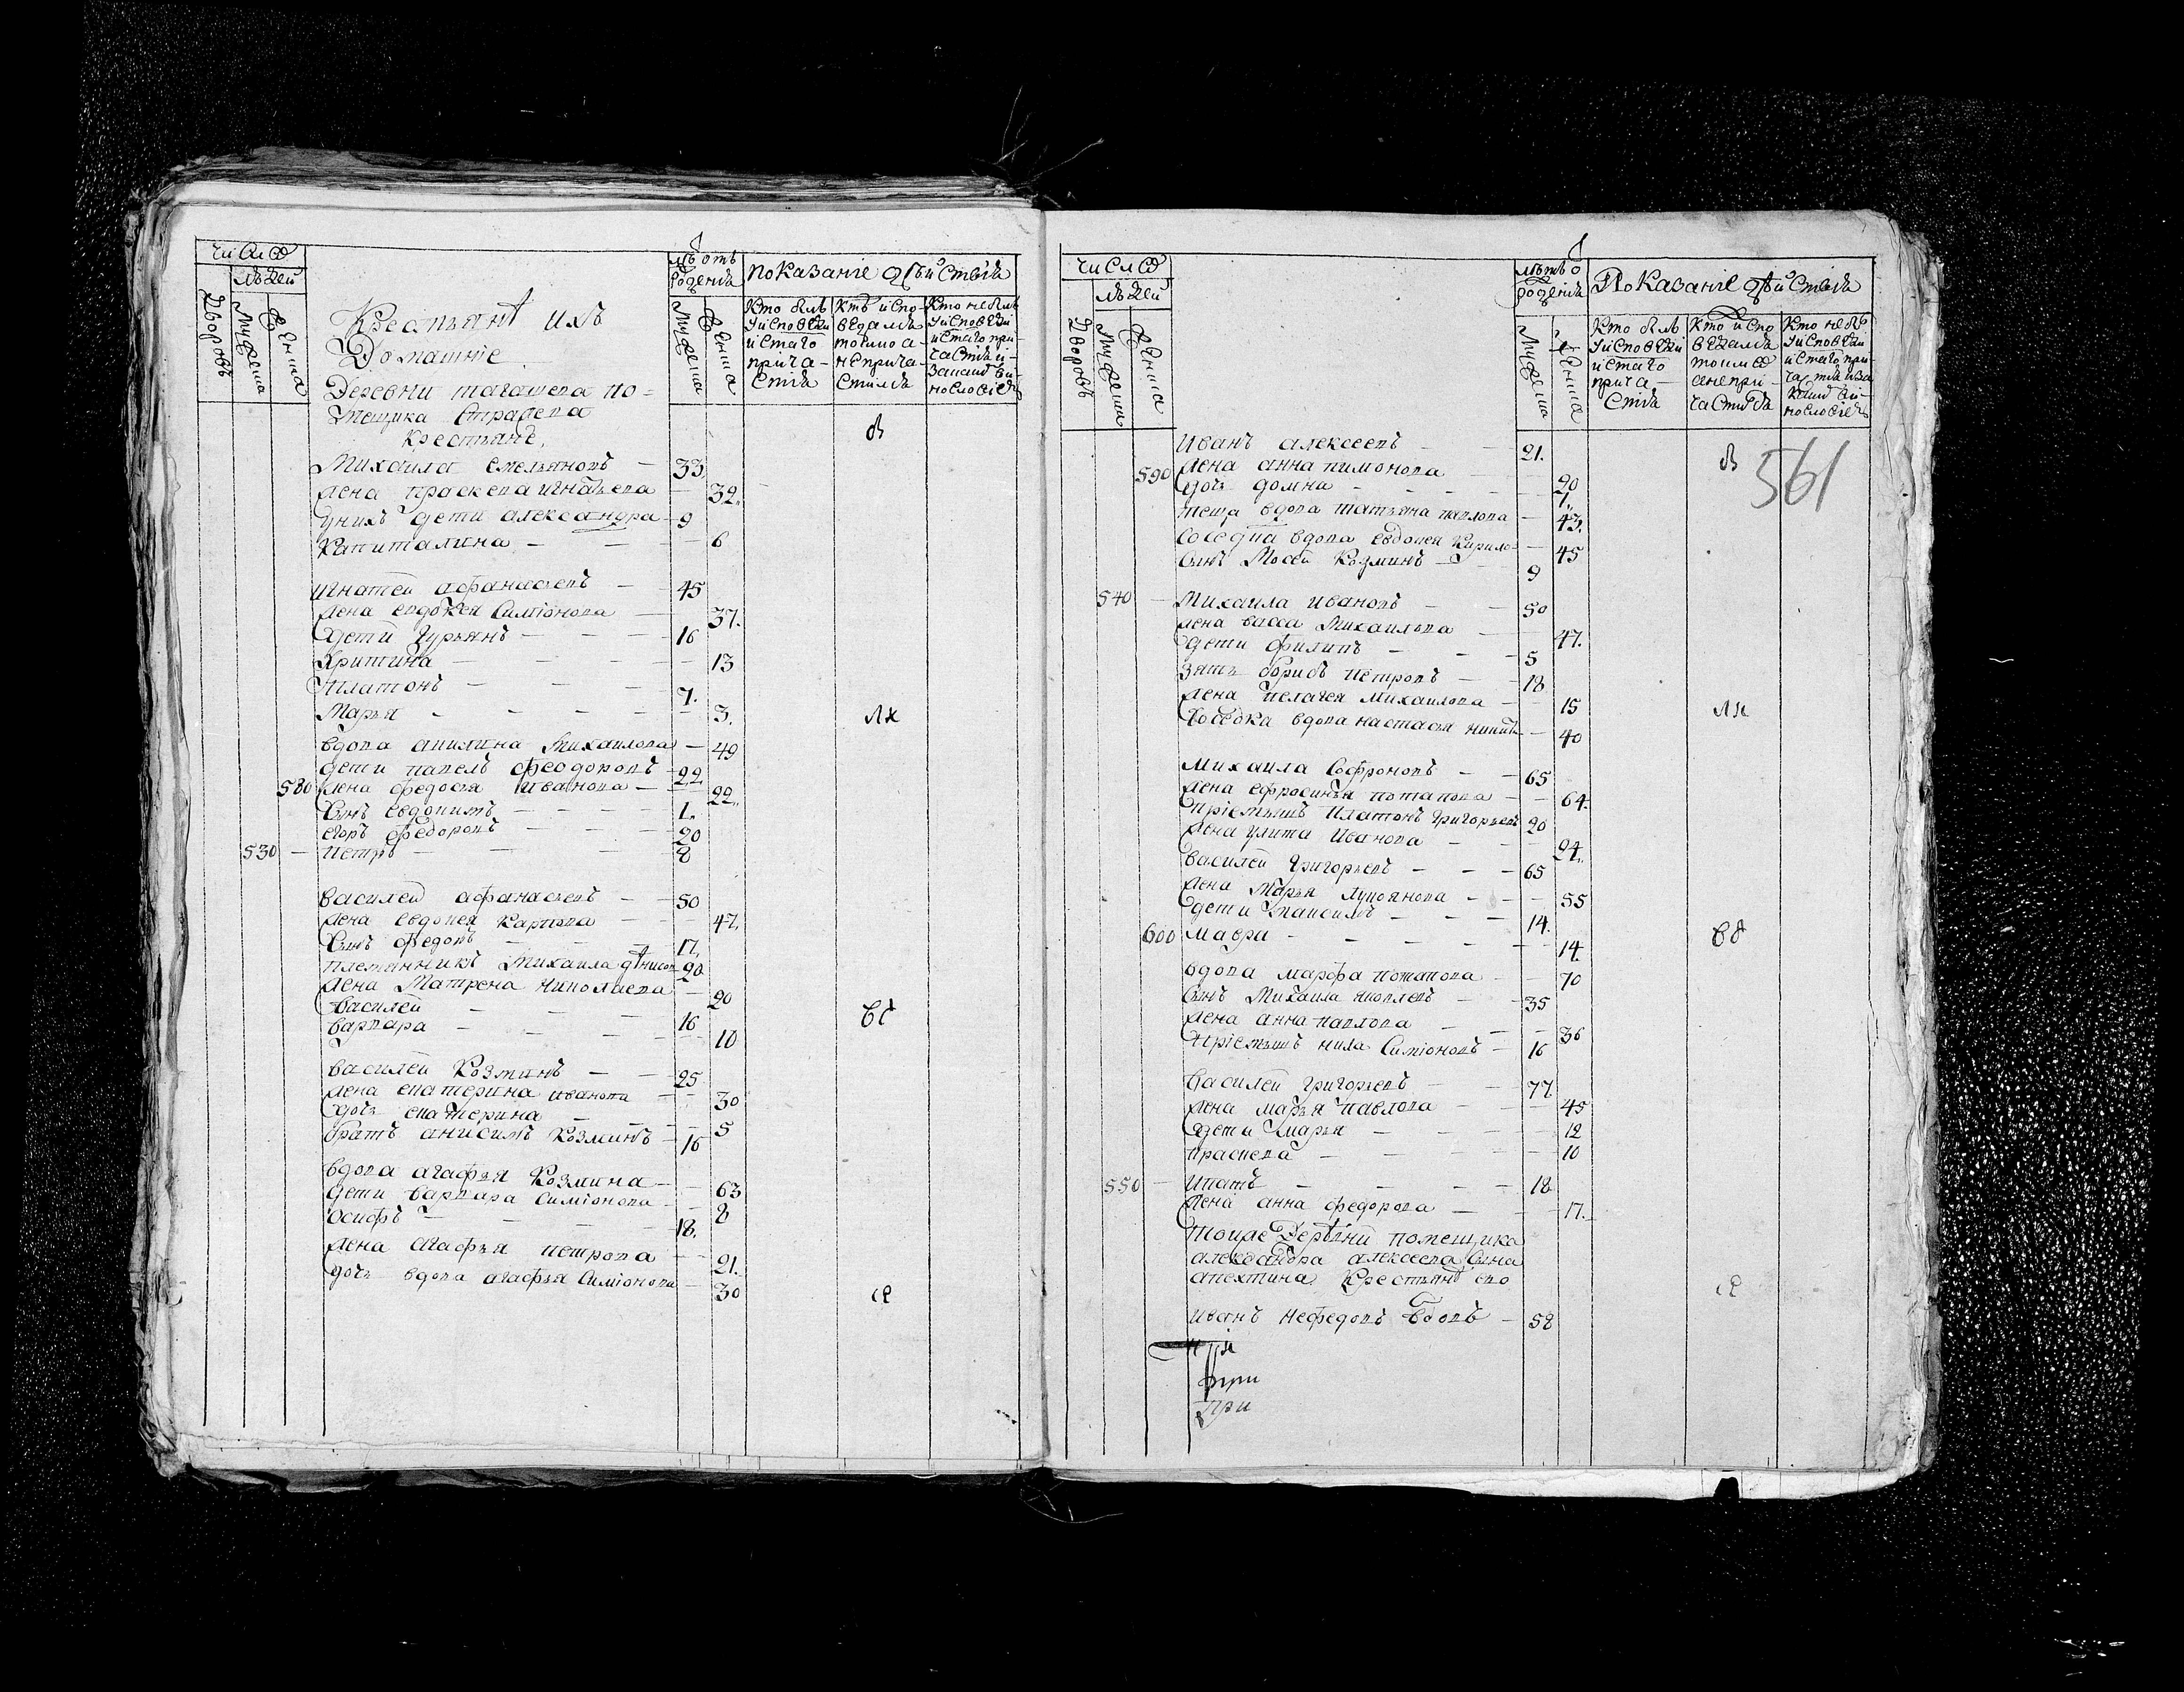 число
людей
Дворовъ
Мужеска
Женска
лѣ отъ
рожденiя
Мужеска
Женска
показанiе дѣйствiя
Кто былъ у исповѣди и святаго причастiя
Кто исповѣдался токмо а не причастился
Кто не былъ у исповѣди и святаго при-
Крестьянѣ ихъ
Домашнiе
Деревни по=
мещика
крестьянѣ
Михаила емельяновъ — 33
жена праскева игнатьева — 32
у нихъ дети александра — 9
Капиталина — 6
игнатей афанасьевъ — 45
жена евдокея Симiонова — 37
дети гурьянъ — 16
Христина — 13
Платонъ — 7
Марья — 3
вдова акилина Михаилова — 49
дети павелъ феодоровъ — 22
580 жена федосья Иванова — 22
сынъ евдокимъ — 1
егоръ федоровъ — 20
530 — петръ — 8
василей афанасьевъ — 50
жена евдокея Карпова — 47
сынъ федотъ — 17
племянникъ Михаила 20
жена Матрена николаева — 20
василей — 16
варвара — 10
василей Козминъ — 25
жена екатерина иванова — 30
дочь екатерина — 5
братъ анисимъ Козминъ — 16
вдова агафья Козмина — 63
дети варвара Симiонова — 8
осифъ — 18
жена агафья петрова — 21
дочь вдова агафья Симiонова — 30
число
людей
Дворовъ
Мужеска
Женска
рожденiя
Мужеска
Женска
Показанiе дѣйствiя
Кто былъ у исповѣди и святаго причастiя
Кто исповѣдался токмо а не причастился
Кто не былъ у исповѣди и святаго при-
561
иванъ алексеевъ — 21
590 жена анна пимонова — 20
дочь домна — 1
теща вдова татьяна павлова — 43
соседка вдова евдокея Кирило — 45
сынъ Мосей Козминъ — 9
540 — Михаила ивановъ — 50
жена васса Михаилова — 47
дети филипъ — 5
зять борисъ петровъ — 18
жена пелагея Михаилова — 15
соседка вдова настасья 40
Михаила Софроновъ — 65
жена ефросинья потапова — 64
прiемышъ Платонъ григорьевъ 20
жена улита Иванова — 24
василей григорьевъ — 65
жена Марья лукоянова — 55
дети 14
600 мавра — 14
вдова марфа потапова — 70
сынъ Михаила яковлевъ — 35
жена анна павлова — 36
прiемышъ нила Симiоновъ — 16
василей григорьевъ — 77
жена марья павлова — 45
дети марья — 12
праскева — 10
550 — ипатъ — 18
жена анна федорова — 17
тоижеДеревни помещика
александра алексеева сына
апехтина Крестьянѣ ево
иванъ нефедовъ вдовъ — 58
при
при